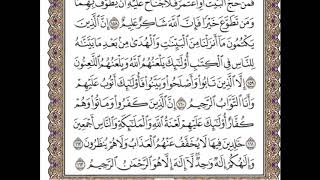 فَمَنْ حَجَّ الْبَيْتَ أَوِ اعْتَمَرَ فَلَا جُنَاحَ عَلَيْهِ أَن يَطَّوَّفَ بِهِمَا
وَمَن تَطَوَّعَ خَيْرًا فَإِنَّ اللَّهَ شَاكِرٌ عَلِيمٌ ١٥٨ إِنَّ الَّذِينَ
يَكْتُمُونَ مَا أَنزَلْنَا مِنَ الْبَيِّنَٰتِ وَالْهُدَىٰ مِن بَعْدِ مَا بَيَّنَّٰهُ
لِلنَّاسِ فِي الْكِتَٰبِ أُولَٰئِكَ يَلْعَنُهُمُ اللَّهُ وَيَلْعَنُهُمُ اللَّٰعِنُونَ
١٥٩ إِلَّا الَّذِينَ تَابُوا وَأَصْلَحُوا وَبَيَّنُوا فَأُولَٰئِكَ أَتُوبُ عَلَيْهِمْ
وَأَنَا التَّوَّابُ الرَّحِيمُ ١٦٠ إِنَّ الَّذِينَ كَفَرُوا وَمَاتُوا وَهُمْ
كُفَّارٌ أُولَٰئِكَ عَلَيْهِمْ لَعْنَةُ اللَّهِ وَالْمَلَٰئِكَةِ وَالنَّاسِ أَجْمَعِينَ
١٦١ خَٰلِدِينَ فِيهَا لَا يُخَفَّفُ عَنْهُمُ الْعَذَابُ وَلَا هُمْ يُنظَرُونَ
١٦٢ وَإِلَٰهُكُمْ إِلَٰهٌ وَٰحِدٌ لَّا إِلَٰهَ إِلَّا هُوَ الرَّحْمَٰنُ الرَّحِيمُ ١٦٣